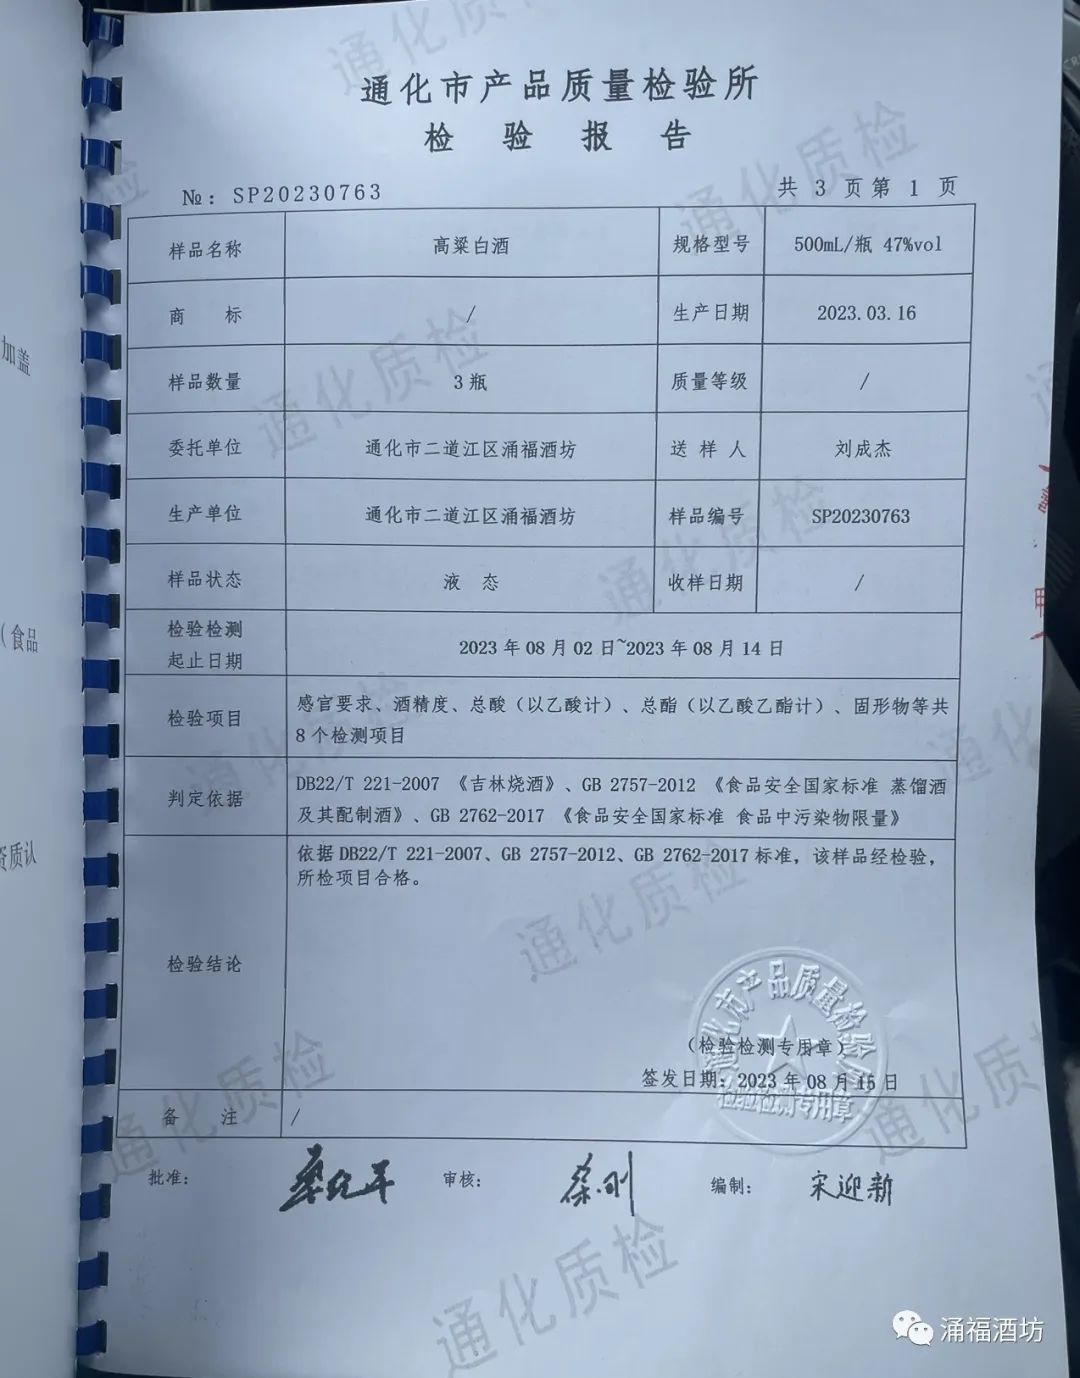 通化市产品质量检验所
检 验 报 告
№：SP20230763
共 3 页第 1 页
样品名称 高粱白酒 规格型号 500mL/瓶 47%vol
商 标 / 生产日期 2023.03.16
样品数量 3瓶 质量等级 /
委托单位 通化市二道江区涌福酒坊 送 样 人 刘成杰
生产单位 通化市二道江区涌福酒坊 样品编号 SP20230763
样品状态 液 态 收样日期 /
检验检测
起止日期
2023 年 08 月 02 日~2023 年 08 月 14 日
检验项目
感官要求、酒精度、总酸（以乙酸计）、总酯（以乙酸乙酯计）、固形物等共
8 个检测项目
判定依据
DB22/T 221-2007 《吉林烧酒》、GB 2757-2012 《食品安全国家标准 蒸馏酒
及其配制酒》、GB 2762-2017 《食品安全国家标准 食品中污染物限量》
检验结论
依据 DB22/T 221-2007、GB 2757-2012、GB 2762-2017 标准，该样品经检验，
所检项目合格。
通化市产品质量检验所
（检验检测专用章）
签发日期：2023 年 08 月 15 日
检验检测专用章
备 注 /
批准： 审核： 徐刚 编制： 宋迎新
通化质检
通化质检
通化质检
通化质检
通化质检
通化质检
通化质检
通化质检
加盖
（食品
资质认
涌福酒坊